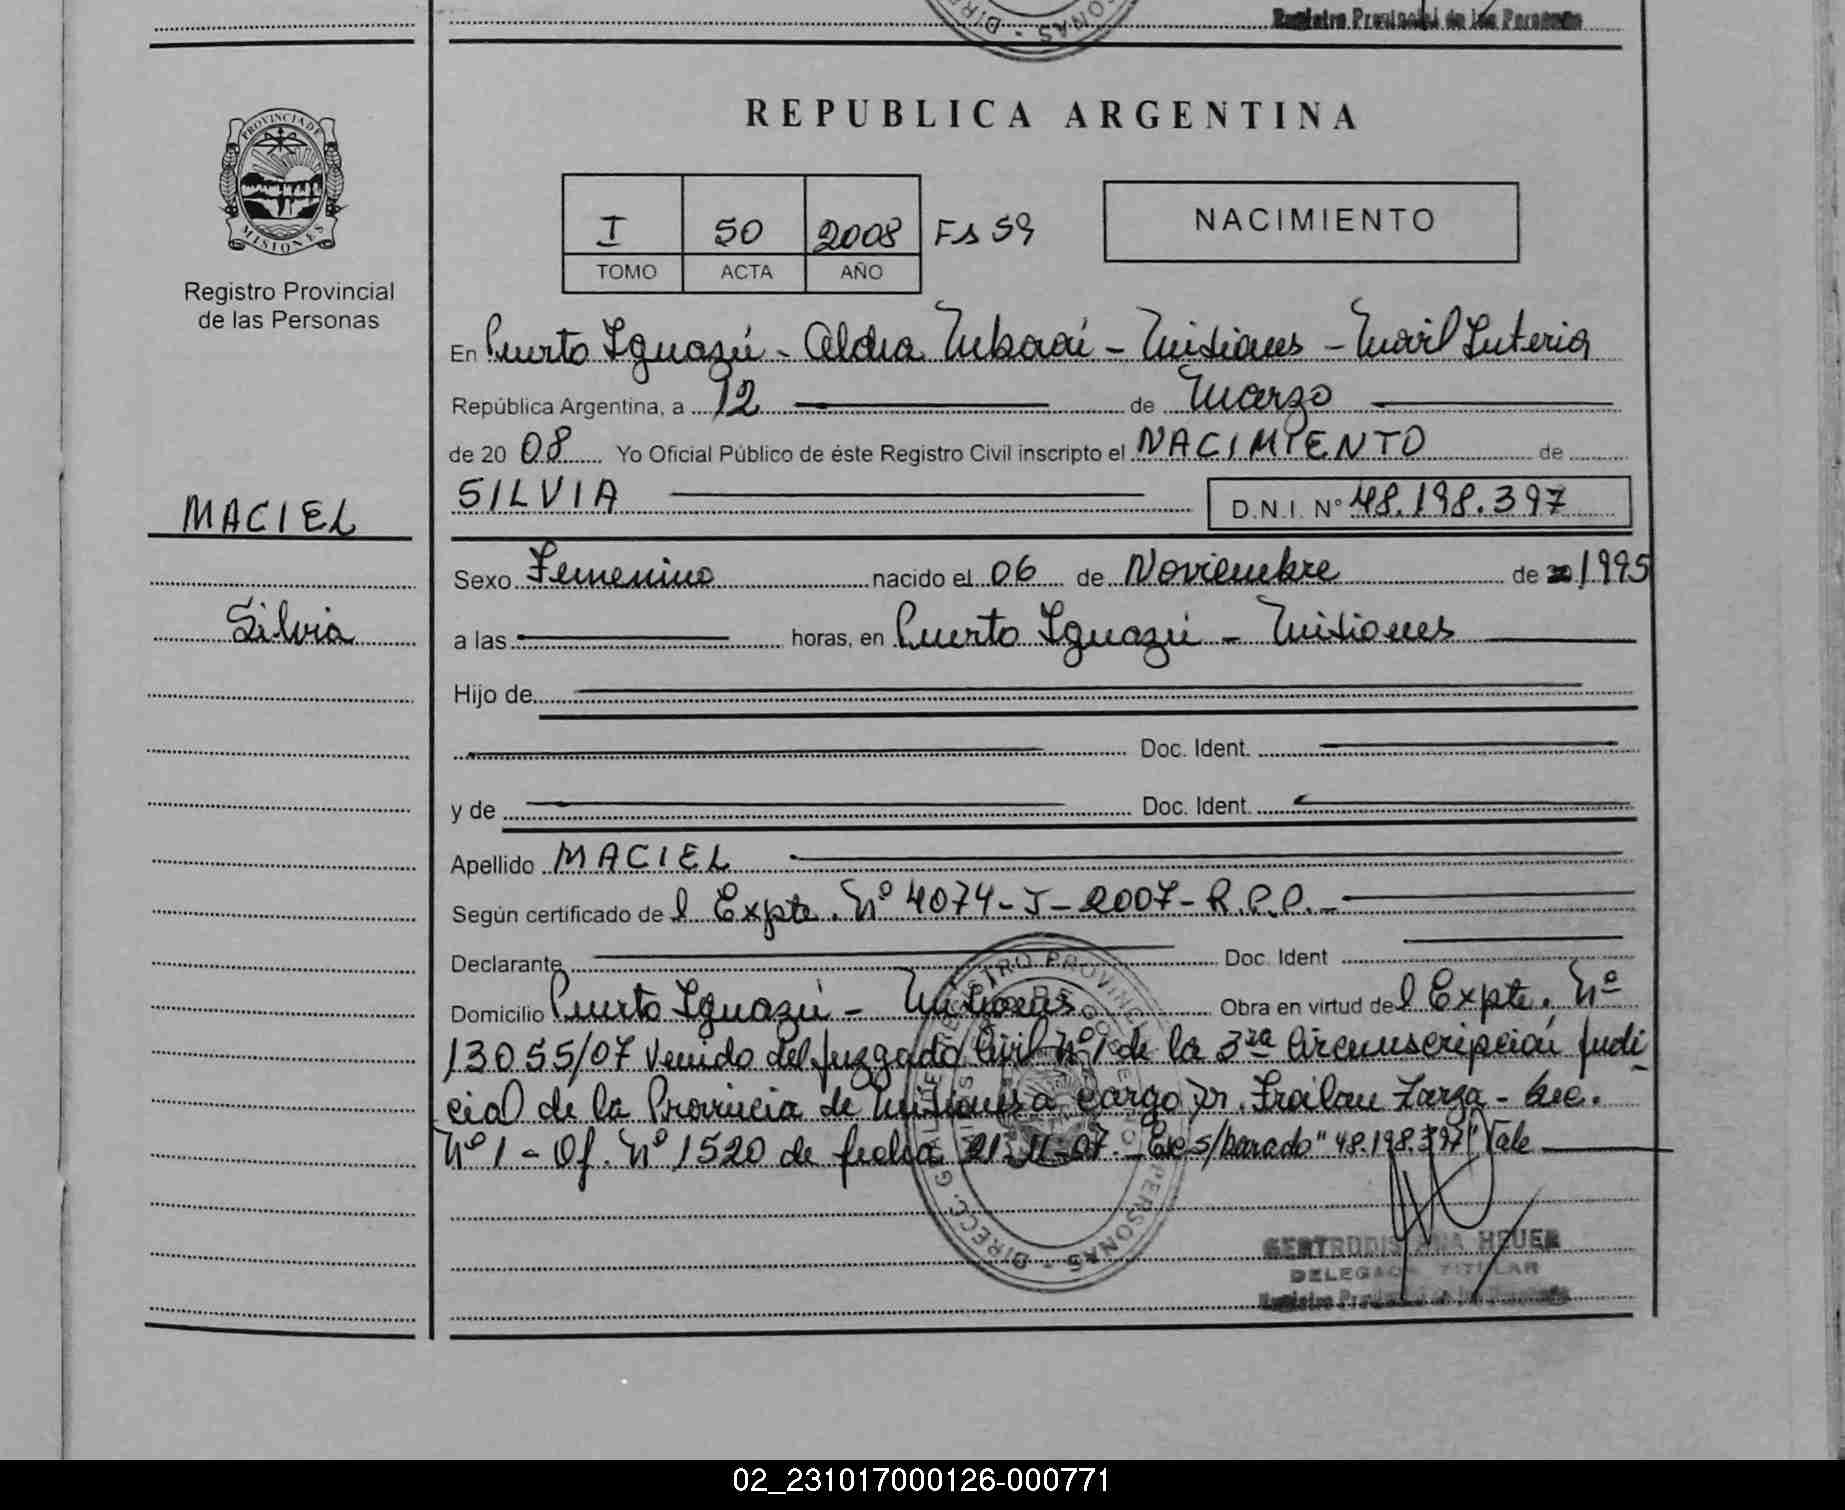 Registro Provincial de las Personas
PROVINCIA DE
MISIONES
Registro Provincial
de las Personas
REPUBLICA ARGENTINA
I 50 2008 Fs 59
TOMO ACTA AÑO
NACIMIENTO
En Puerto Iguazú - Aldea - Misiones -
República Argentina, a 12 de Marzo
de 20 08 Yo Oficial Público de éste Registro Civil inscripto el NACIMIENTO de
MACIEL
SILVIA D.N.I. N° 48.198.397
Sexo Femenino nacido el 06 de Noviembre de 1995
Silvia
a las horas, en Puerto Iguazú - Misiones
Hijo de
Doc. Ident.
y de Doc. Ident.
Apellido MACIEL
Según certificado de l Expte. Nº 4074-J-2007-R.P.P.
Declarante Doc. Ident
Domicilio Puerto Iguazú - Misiones Obra en virtud de l Expte. Nº
13055/07 venido del Juzgado Civil Nº 1 de la 3ra Circunscripción Judi
cial de la Provincia de Misiones a cargo Dr. Froilan Zarza - Sec.
Nº 1 - Of. Nº 1520 de fecha 21-11-07. - s/borado "48.198.397" Vale
GERTRUDIS ANA HEUER
DELEGADA TITULAR
Registro Provincial de las Personas
02_231017000126-000771